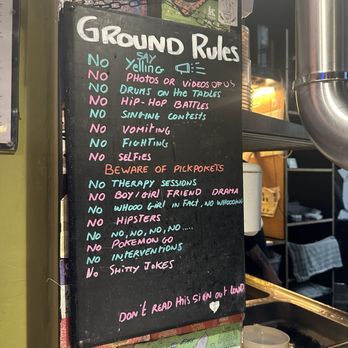 GROUND RULES
SAY
NO Yelling
NO PHOTOS OR VIDEOS OF US
NO DRUMS ON THE TABLES
NO HIP-HOP BATTLES
NO SINKING CONTESTS
NO VOMITING
NO FIGHTING
NO SELFIES
BEWARE OF PICKPOKETS
NO THERAPY SESSIONS
NO BOY/GIRL FRIEND DRAMA
NO WHOOO GIRL IN FACT, NO WHOOOING
NO HIPSTERS
NO NO, NO, NO, NO.....
NO POKEMON GO
NO INTERVENTIONS
No SHITTY JOKES
DON'T READ THIS SIGN OUT LOUD